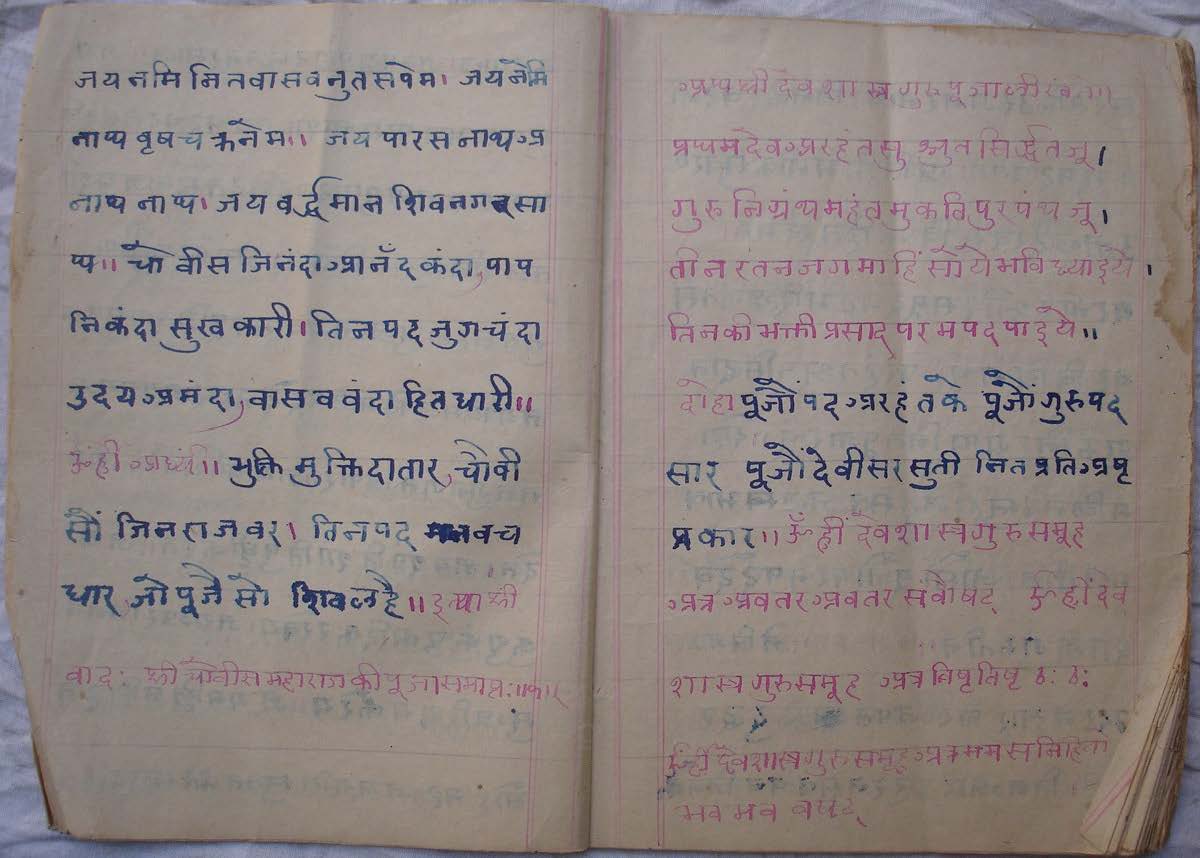 जय नमि नितवासव नुत सपेम। जय नेमि
नाथ वृषचक्रनेम॥ जय पारस नाथ अ
नाथ नाथ। जय वर्द्धमान शिवनगर सा
थ॥ चौवीस जिनंदा आनँद कंदा, पाप
निकंदा सुखकारी। तिन पद जुगचंदा
उदय अमंदा, वासव वंदा हितधारी॥
ऊँ ह्रीं अर्घ्यं॥ भुक्ति मुक्ति दातार, चौवी
सौं जिनराज वर। तिन पद मनवच
धार, जो पूजै सो शिव लहै॥ इत्याशी
वादः श्री चौवीस महाराज की पूजा समाप्तः॥
अथ श्री देव शास्त्र गुरु पूजा
प्रथम देव अरहंत सु श्रुत सिद्धंत जू।
गुरु निग्रंथ महंत मुकतिपुर पंथ जू।
तीन रतन जग माहिं सो ये भवि ध्याइये।
तिनकी भक्ती प्रसाद परम पद पाइये॥
दोहा पूजौं पद अरहंत के पूजौं गुरु पद
सार पूजौं देवी सरसुती नित प्रति अष्ट
प्रकार॥ ऊँ ह्रीं देव शास्त्र गुरु समूह
अत्र अवतर अवतर संवौषट् ऊँ ह्रीं देव
शास्त्र गुरु समूह अत्र तिष्ठ तिष्ठ ठः ठः
ऊँ ह्रीं देव शास्त्र गुरु समूह अत्र मम सन्निहितो
भव भव वषट्